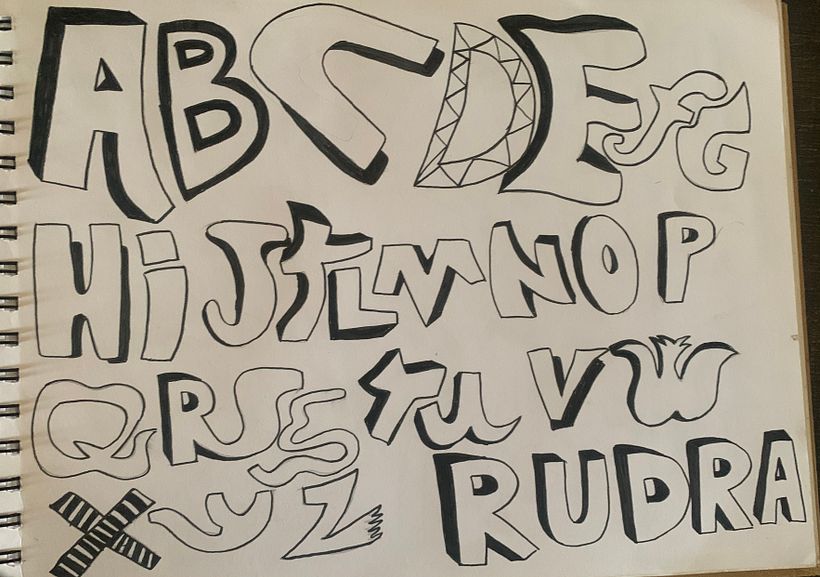 A B C D E F G
H i J K L M N O P
Q R S S t u V W
X y Z RUDRA